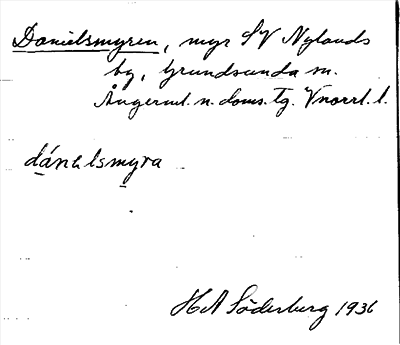 Danielsmyren, myr SV Nylands
by, Grundsunda sn.
Ångerml. n. doms. tg. Vnorrl. l.
dánɩlsmyra
HA Söderberg 1936